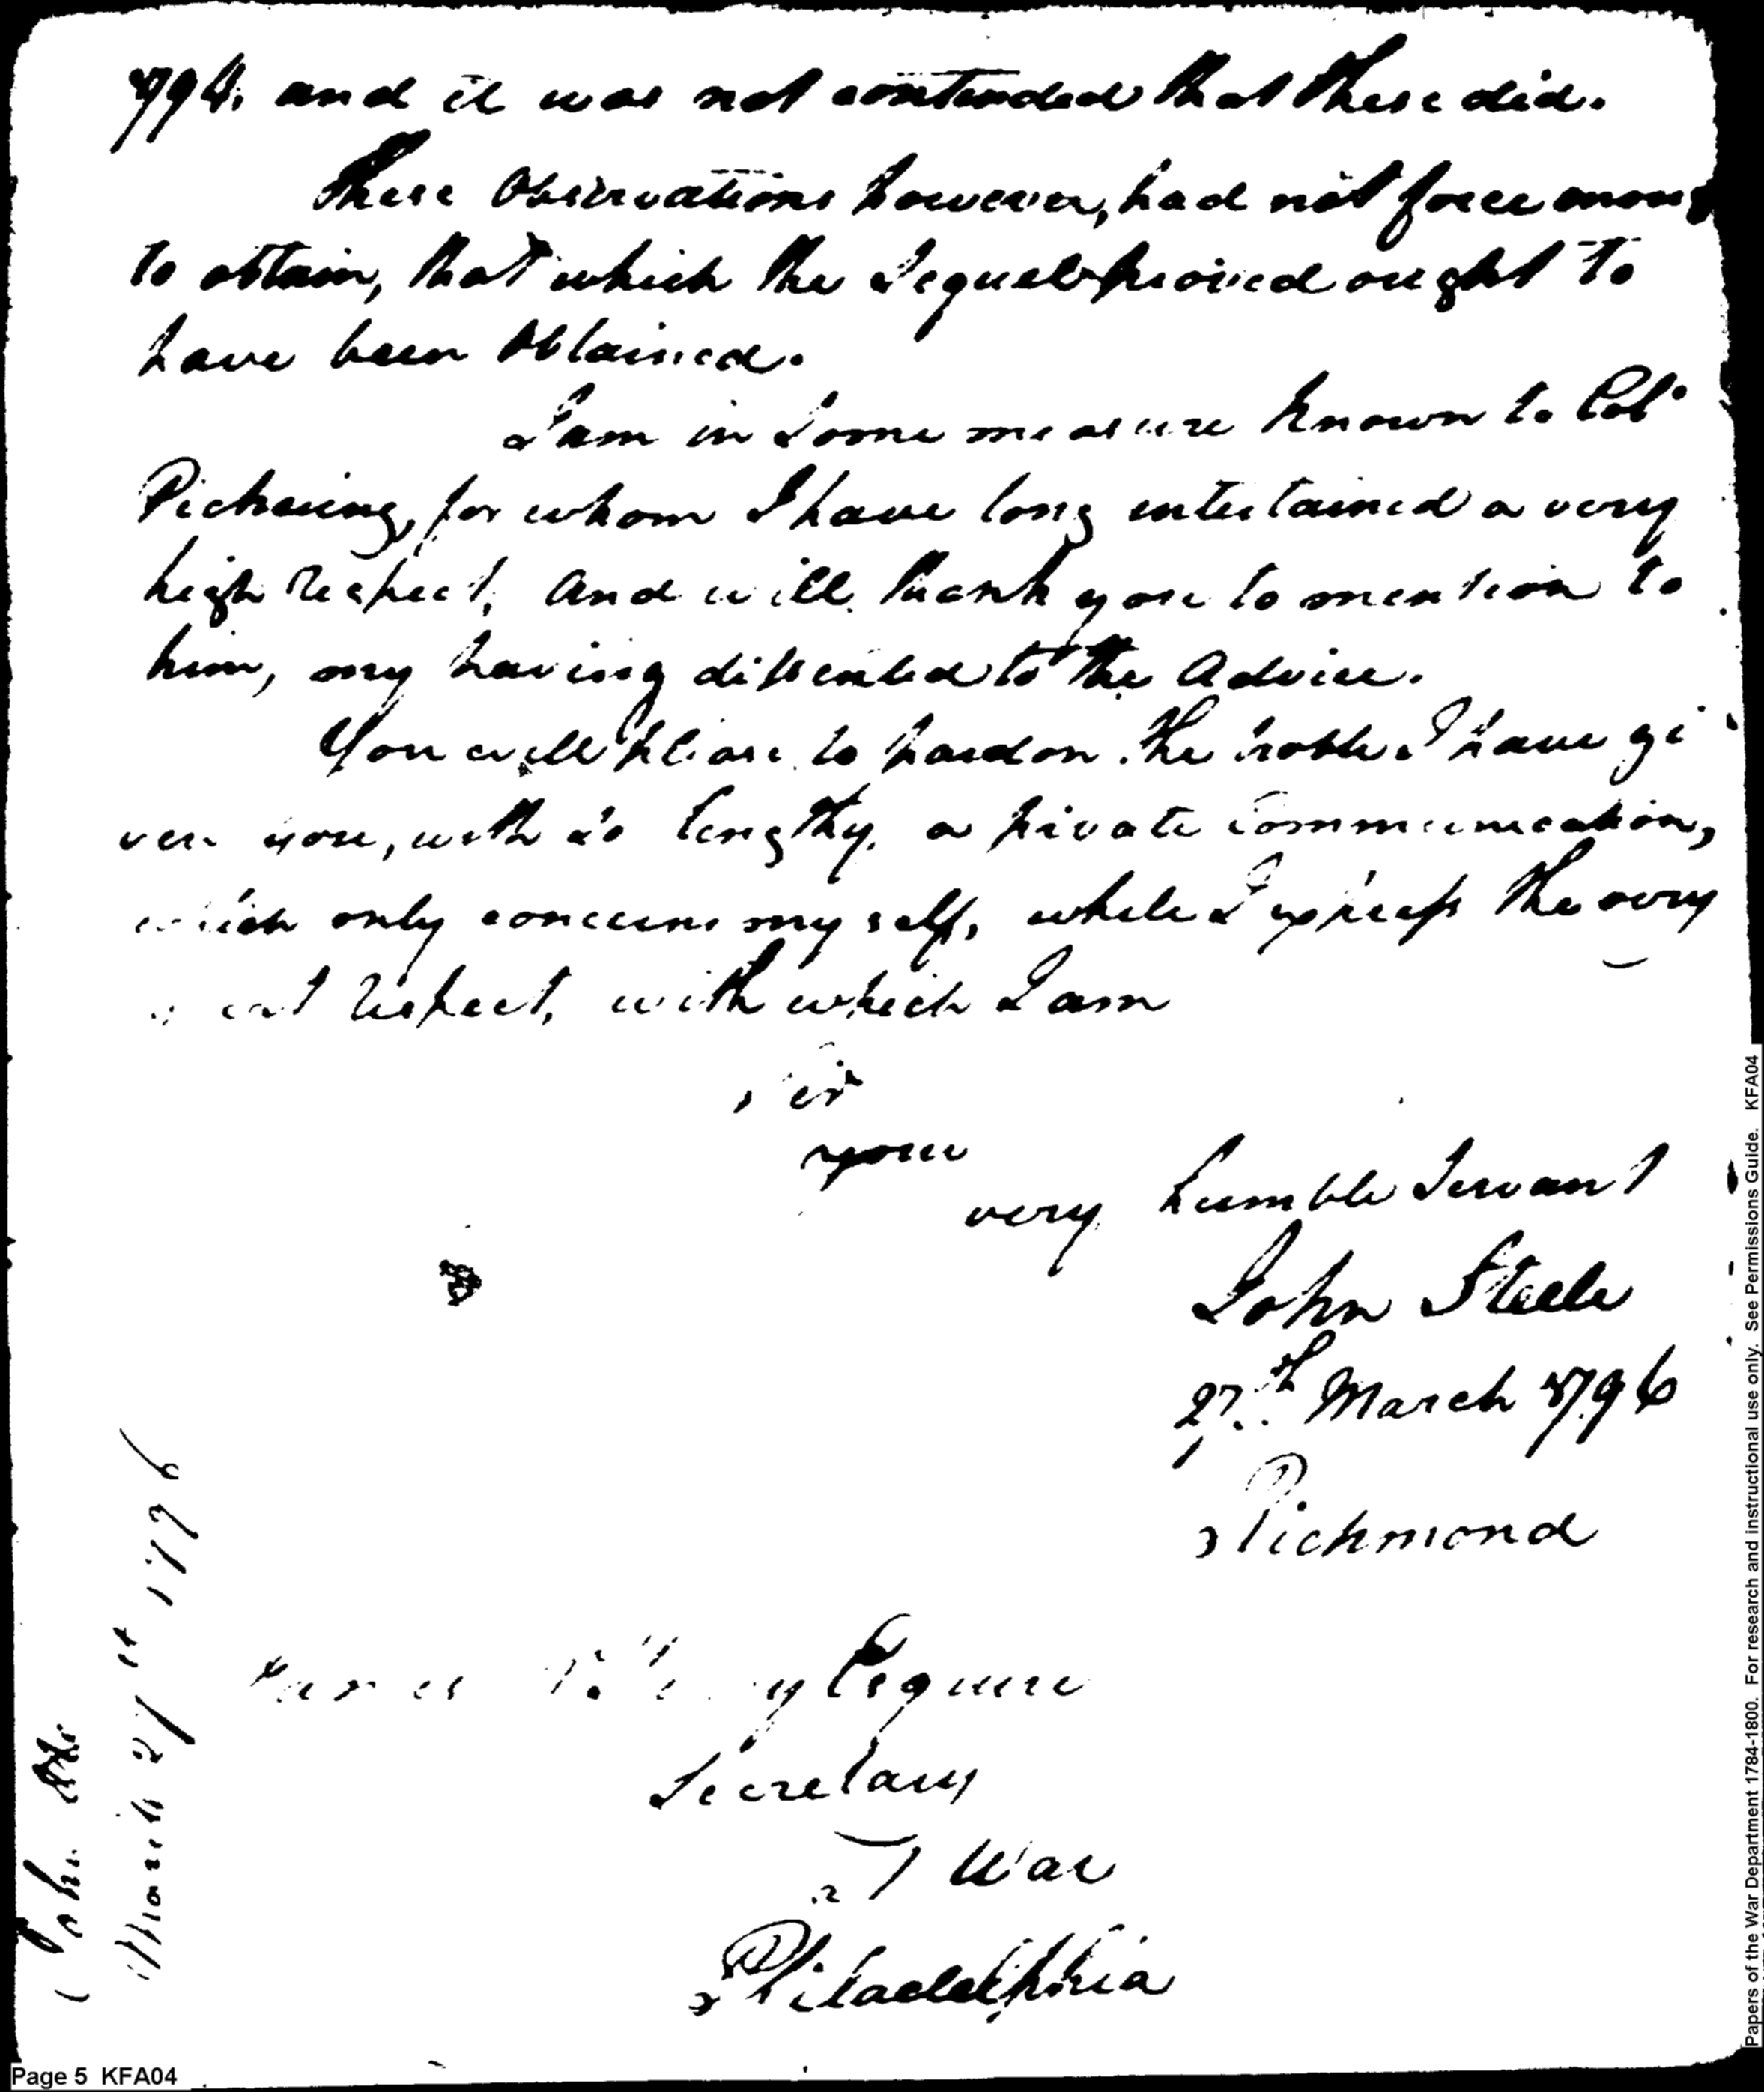 and it was not contended that these did.
These Observations however, had not force enoug
to obtain, that which the Sequel proved ought to
have been Obtained.
I am in Some measure known to Col.
Pickering, for whom I have long entertained a very
high Respect, And will thank you to mention to
him, my having dissented to the Advice.
You will please to pardon the trouble I have gi
ven you, with so lengthy, a private Communication,
which only concerns my self, while I express the very
great Respect, with which I am
Sir
your
very humble Servant
John Steele
27th March 1796
Richmond
James Esquire
Secretary
at War
Philadelphia
John
March 27th 1796
Page 5 KFA04
Papers of the War Department 1784-1800. For research and instructional use only. See Permissions Guide. KFA04